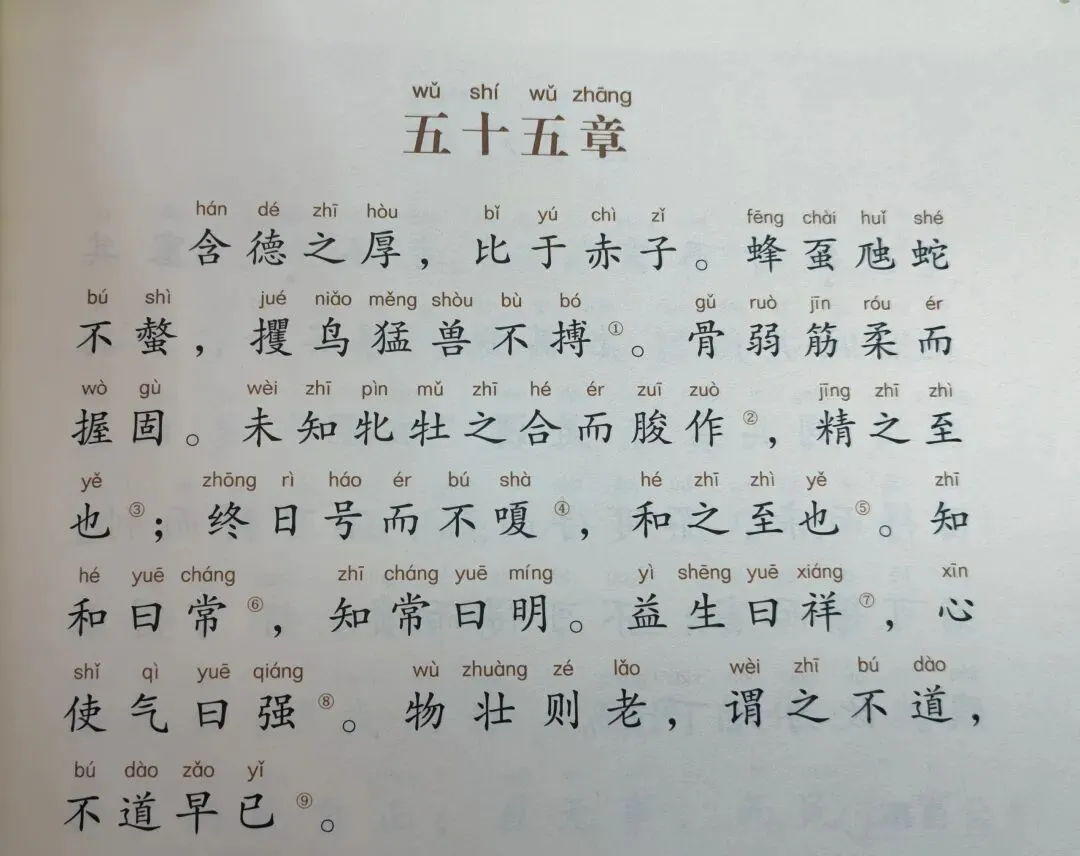 wǔ shí wǔ zhāng
五十五章
hán dé zhī hòu bǐ yú chì zǐ fēng chài huǐ shé
含德之厚，比于赤子。蜂虿虺蛇
bú shì jué niǎo měng shòu bù bó gǔ ruò jīn róu ér
不螫，攫鸟猛兽不搏①。骨弱筋柔而
wò gù wèi zhī pìn mǔ zhī hé ér zuī zuò jīng zhī zhì
握固。未知牝牡之合而朘作②，精之至
yě zhōng rì háo ér bú shà hé zhī zhì yě zhī
也③；终日号而不嗄④，和之至也⑤。知
hé yuē cháng zhī cháng yuē míng yì shēng yuē xiáng xīn
和曰常⑥，知常曰明。益生曰祥⑦，心
shǐ qì yuē qiáng wù zhuàng zé lǎo wèi zhī bú dào
使气曰强⑧。物壮则老，谓之不道，
bú dào zǎo yǐ
不道早已⑨。